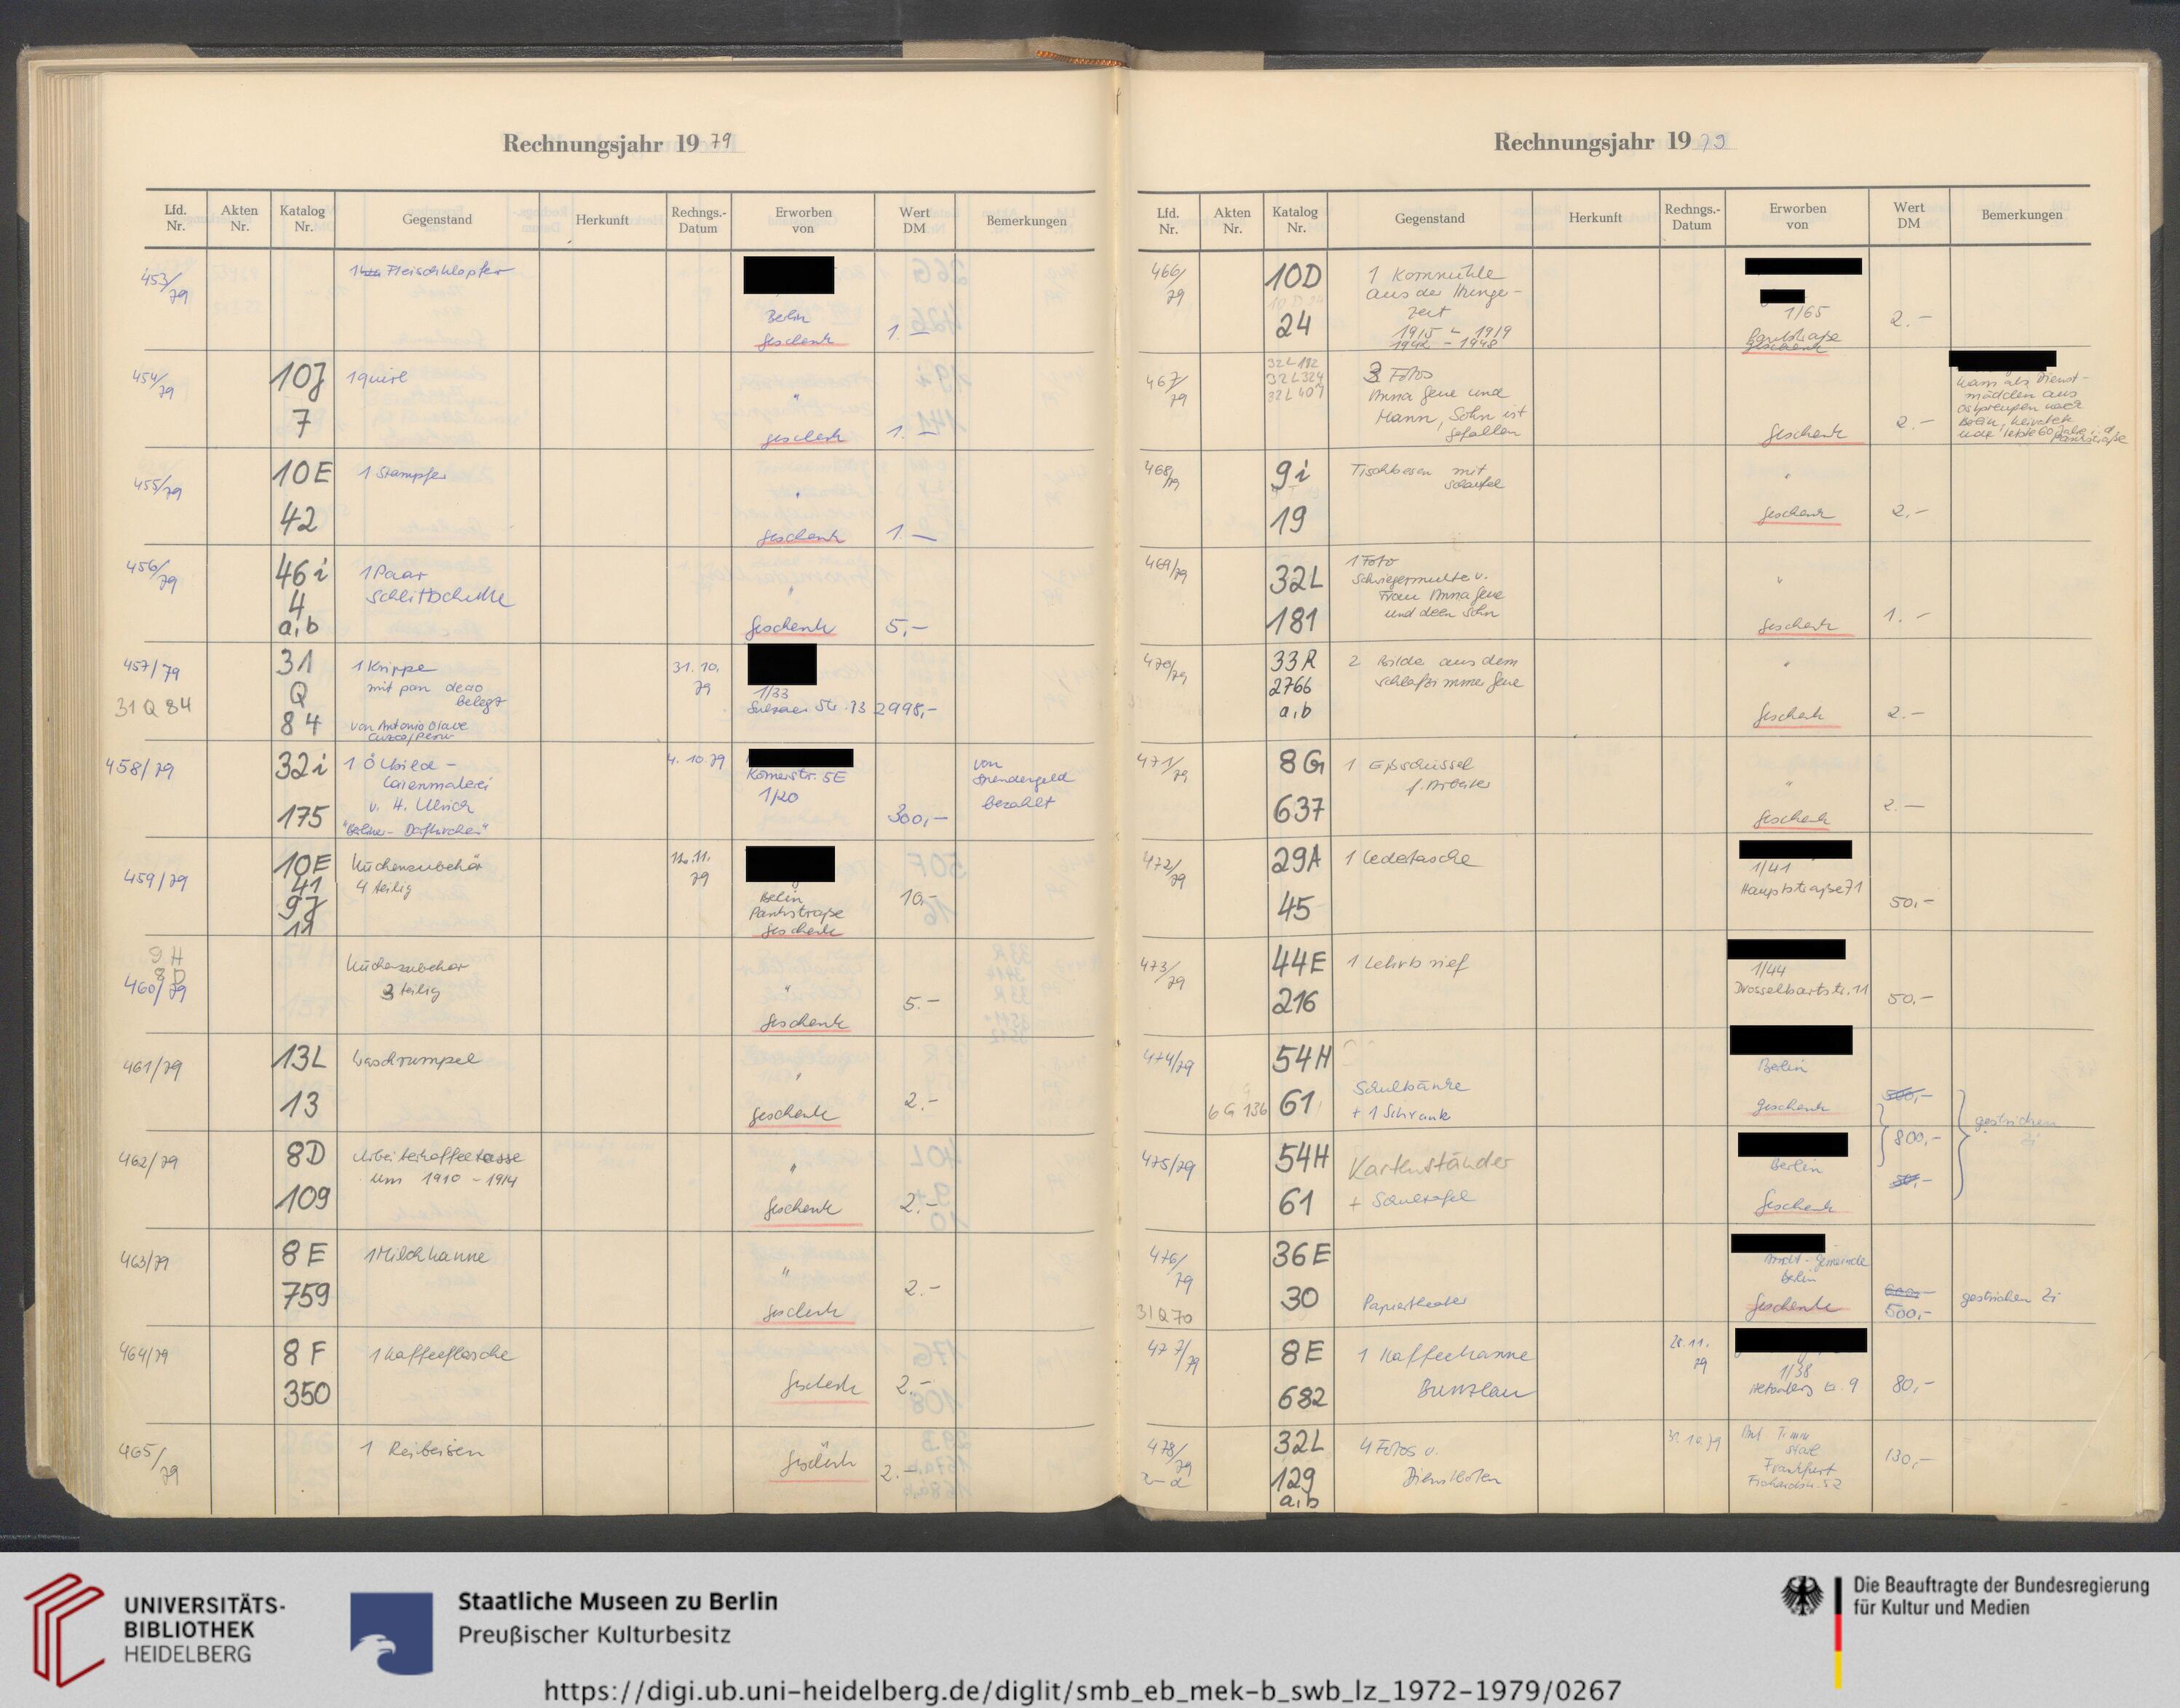 Rechnungsjahr 1979
Lfd. Nr.
Akten Nr.
Katalog Nr.
Gegenstand
Herkunft
Rechngs.-Datum
Erworben von
Wert DM
Bemerkungen
453/79
1 Fleischklopfer
Berlin
Geschenk
1.—
454/79
10J
7
1 Quirl
"
Geschenk
1.—
455/79
10E
42
1 Stampfer
"
Geschenk
1.—
456/79
46i
4
a,b
1 Paar
Schlittschuhe
"
Geschenk
5,-
457/79
31 Q 84
31
Q
84
1 Krippe
mit pan deao
belegt
von Antonio Olave
Cuzco/Peru
31.10.
79
1/33
2998,-
458/79
32i
175
1 Ölbild-
Laienmalerei
v. H. Ulrich
"Berliner- Dorfkirchen"
4.10.79
Körnerstr. 5E
1/20
300,-
von
Spendengeld
bezahlt
459/79
10E
41
9J
11
Küchenzubehör
4 teilig
12.11.
79
Berlin
Pankstraße
Geschenk
10,-
9H
8D
460/79
Küchenzubehör
3 teilig
"
Geschenk
5.-
461/79
13L
13
Waschrumpel
"
Geschenk
2.-
462/79
8D
109
Arbeiterkaffeetasse
um 1910 - 1914
"
Geschenk
2.-
463/79
8E
759
1 Milchkanne
"
Geschenk
2.-
464/79
8F
350
1 Kaffeeflasche
Geschenk
2.-
465/79
1 Reibeisen
Geschenk
2.-
Rechnungsjahr 1979
Lfd. Nr.
Akten Nr.
Katalog Nr.
Gegenstand
Herkunft
Rechngs.-Datum
Erworben von
Wert DM
Bemerkungen
466/79
10D
24
1 Kornmühle
aus der Hunger-
zeit
1915 - 1919
1942 - 1948
1/65
Pankstraße
Geschenk
2.-
467/79
32L182
32L324
32L407
3 Fotos
Anna Gene und
Mann, Sohn ist
gefallen
Geschenk
2.-
kam als Dienst-
mädchen aus
Ostpreußen nach
Berlin, heiratete
letzte 60 Jahre i. d.
Pankstraße
468/79
9i
19
Tischbesen mit
Schaufel
"
Geschenk
2,-
469/79
32L
181
1 Foto
Schwiegermutter v.
Frau Anna Gene
und deren Sohn
"
Geschenk
1.-
470/79
33R
2766
a,b
2 Bilder aus dem
Schlafzimmer Gene
"
Geschenk
2.-
471/79
8G
637
1 Eßschüssel
f. Arbeiter
"
Geschenk
2.-
472/79
29A
45
1 Ledertasche
1/41
Hauptstraße 71
50,-
473/79
44E
216
1 Lehrbrief
1/44
Drosselbartstr. 11
50,-
474/79
6G 136
54H
61
Schulbänke
+ 1 Schrank
Berlin
Geschenk
500,-
800,-
gestrichen
Zi
475/79
54H
61
Kartenständer
+ Schultafel
Berlin
Geschenk
80,-
476/79
31Q70
36E
30
Papiertheater
Gemeinde
Berlin
Geschenk
500,-
gestrichen Zi
477/79
8E
682
1 Kaffeekanne
Bunzlau
28.11.
79
1/38
80,-
478/79
a-d
32L
129
a,b
4 Fotos v.
Dienstboten
31.10.79
Frankfurt
130,-
UNIVERSITÄTS-
BIBLIOTHEK
HEIDELBERG
Staatliche Museen zu Berlin
Preußischer Kulturbesitz
Die Beauftragte der Bundesregierung
für Kultur und Medien
https://digi.ub.uni-heidelberg.de/diglit/smb_eb_mek-b_swb_lz_1972-1979/0267